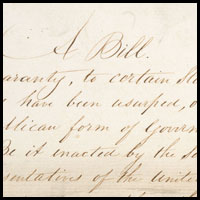 A Bill.
aranty, to certain Sta
have been usurped, o
ublican form of Govern
Be it enacted by the Se
sentatives of the Unite